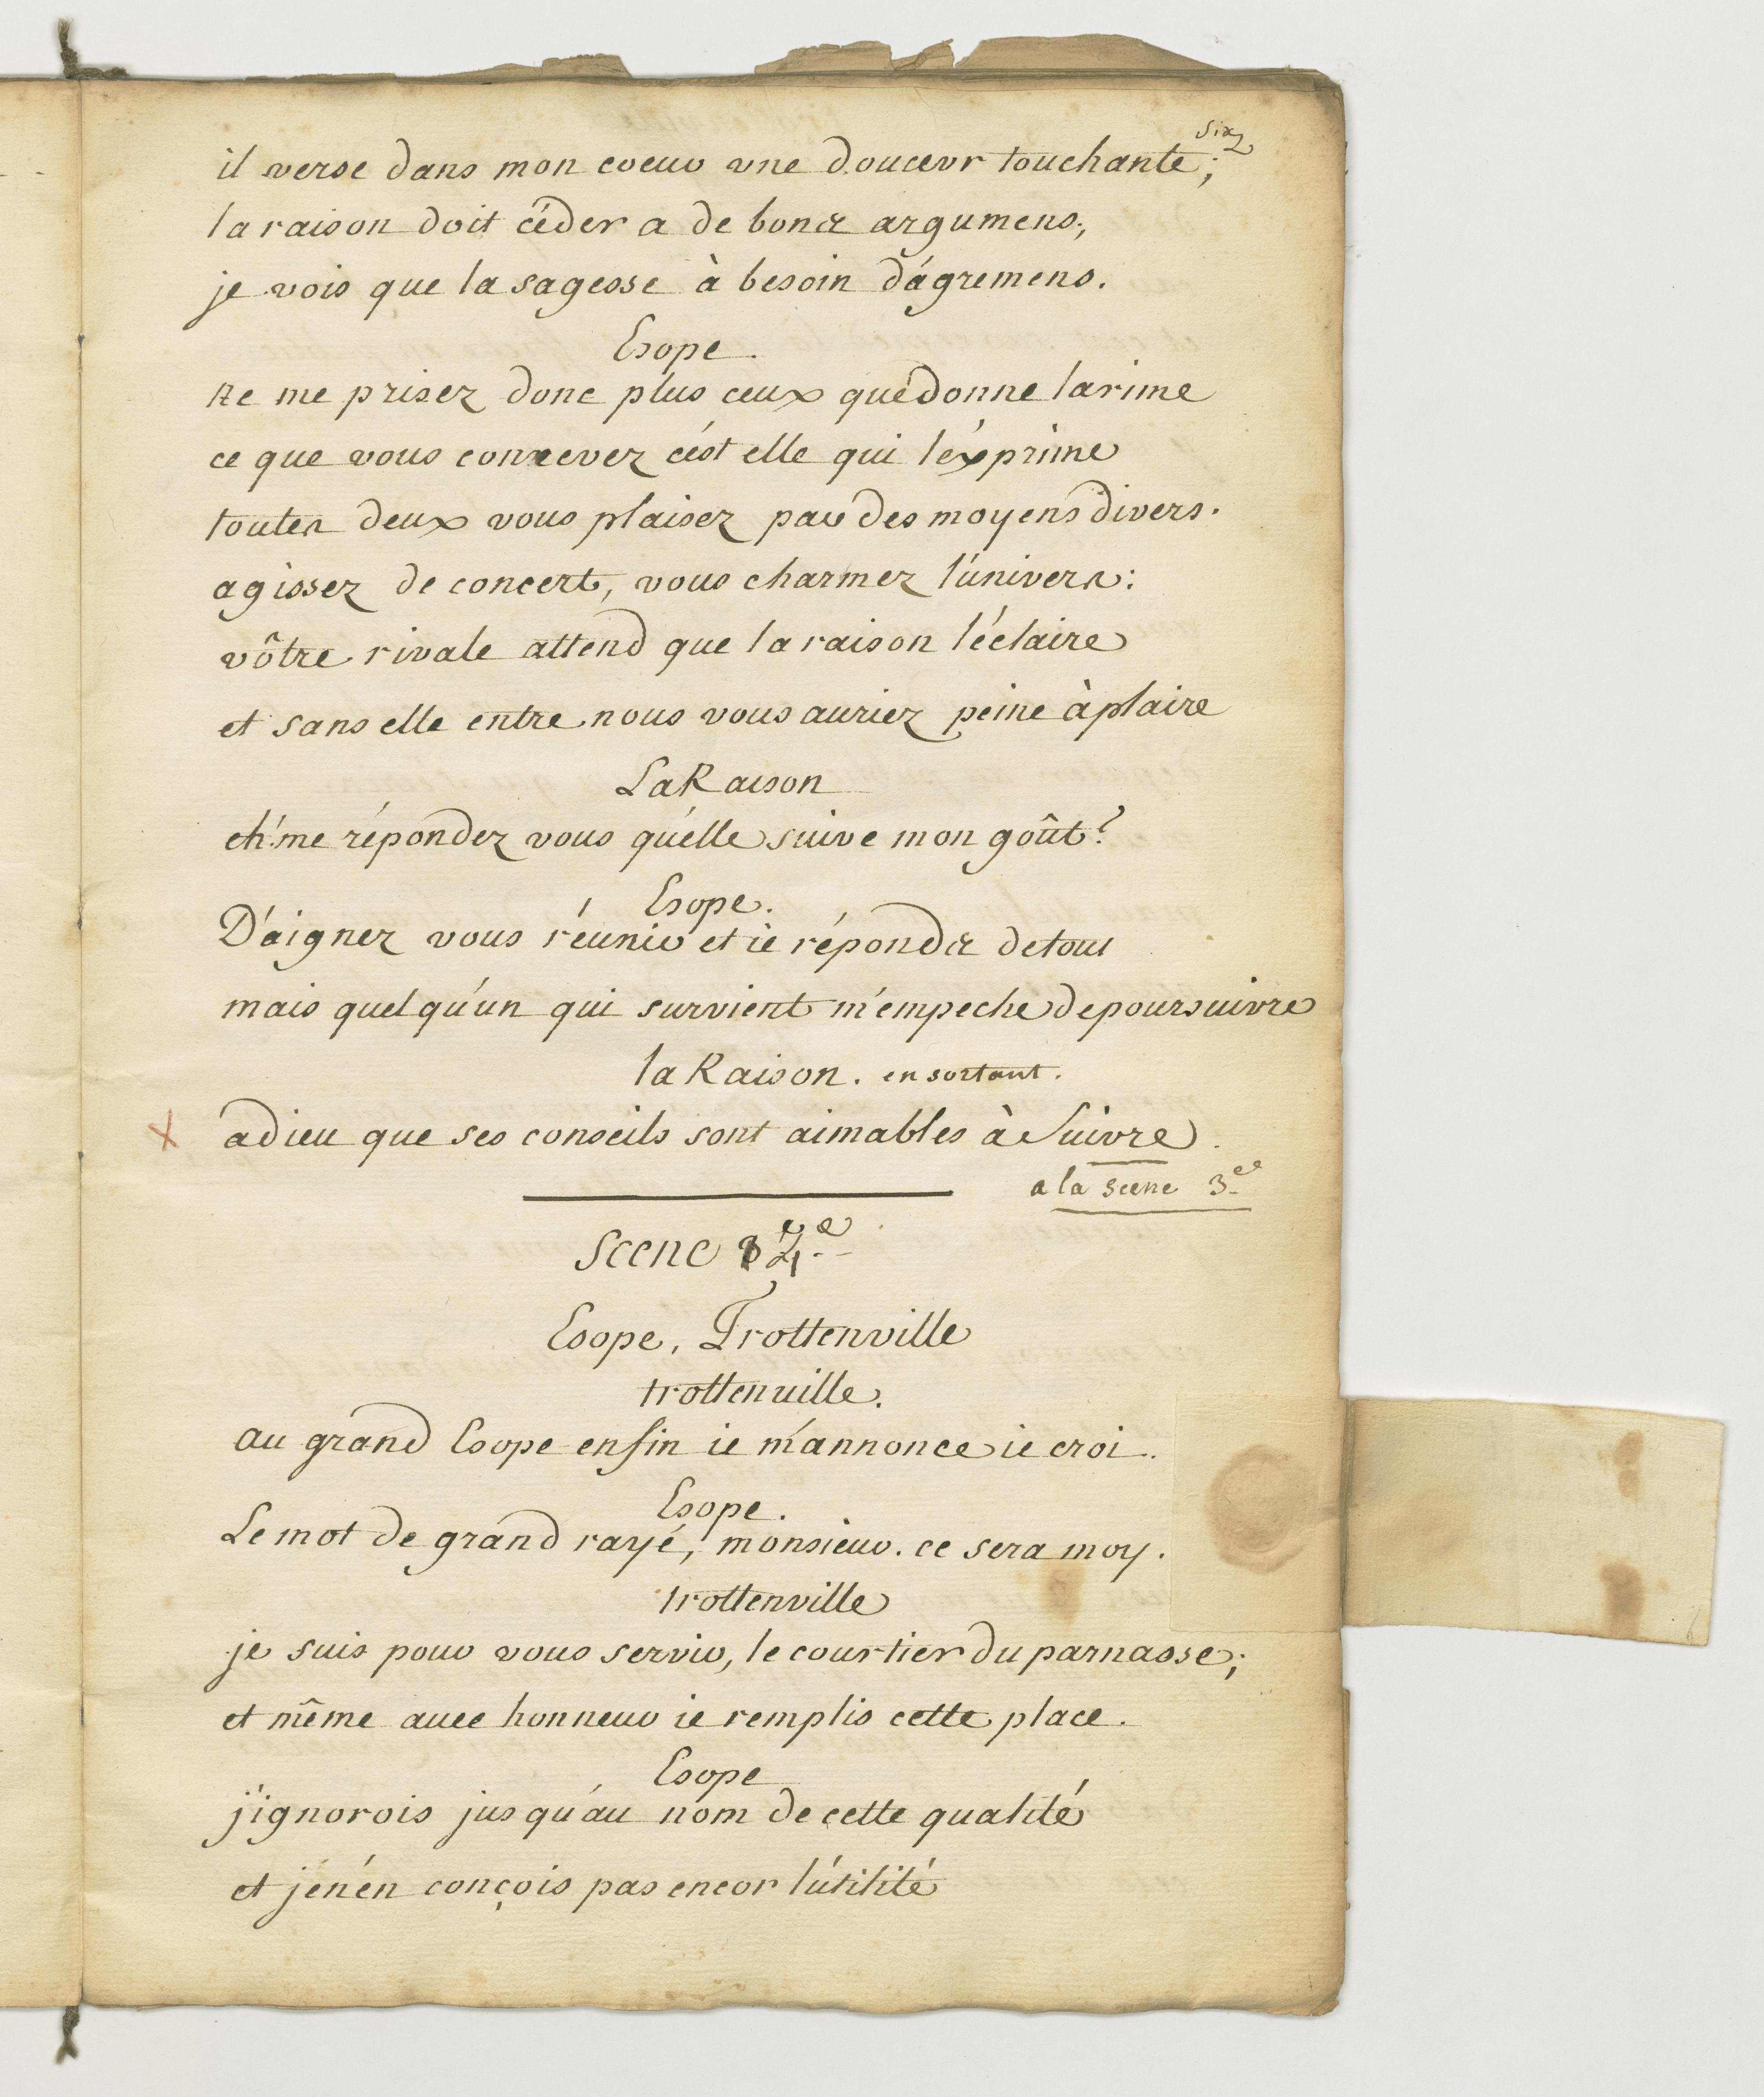 six
il verse dans mon coeur une douceur touchante;
la raison doit céder a de bons argumens;
je vois que la sagesse à besoin d'agremens.
Esope.
ne me prisez donc plus ceux que donne la rime
ce que vous concevez c'est elle qui l'éxprime
toutes deux vous plaisez par des moyens divers.
agissez de concert, vous charmez l'univers:
vôtre rivale attend que la raison l'éclaire
et sans elle entre nous vous auriez peine à plaire
La Raison
eh! me répondez vous qu'elle suive mon goût?
Esope.
D'aignez vous réunir et ie réponds de tout
mais quelqu'un qui survient m'empeche de poursuivre
la Raison. en sortant.
x adieu que ses conseils sont aimables à Suivre.
a la scene 3e
Scene 2e
Esope, Trottenville
trottenuille.
au grand Esope enfin ie m'annonce ie croi.
Esope.
Le mot de grand rayé, monsieur. ce sera moy.
trottenville
je suis pour vous servir, le courtier du parnasse;
et même auec honneur ie remplis cette place.
Esope
j'ignorois jusqu'au nom de cette qualité
et je n'en conçois pas encor l'útilité